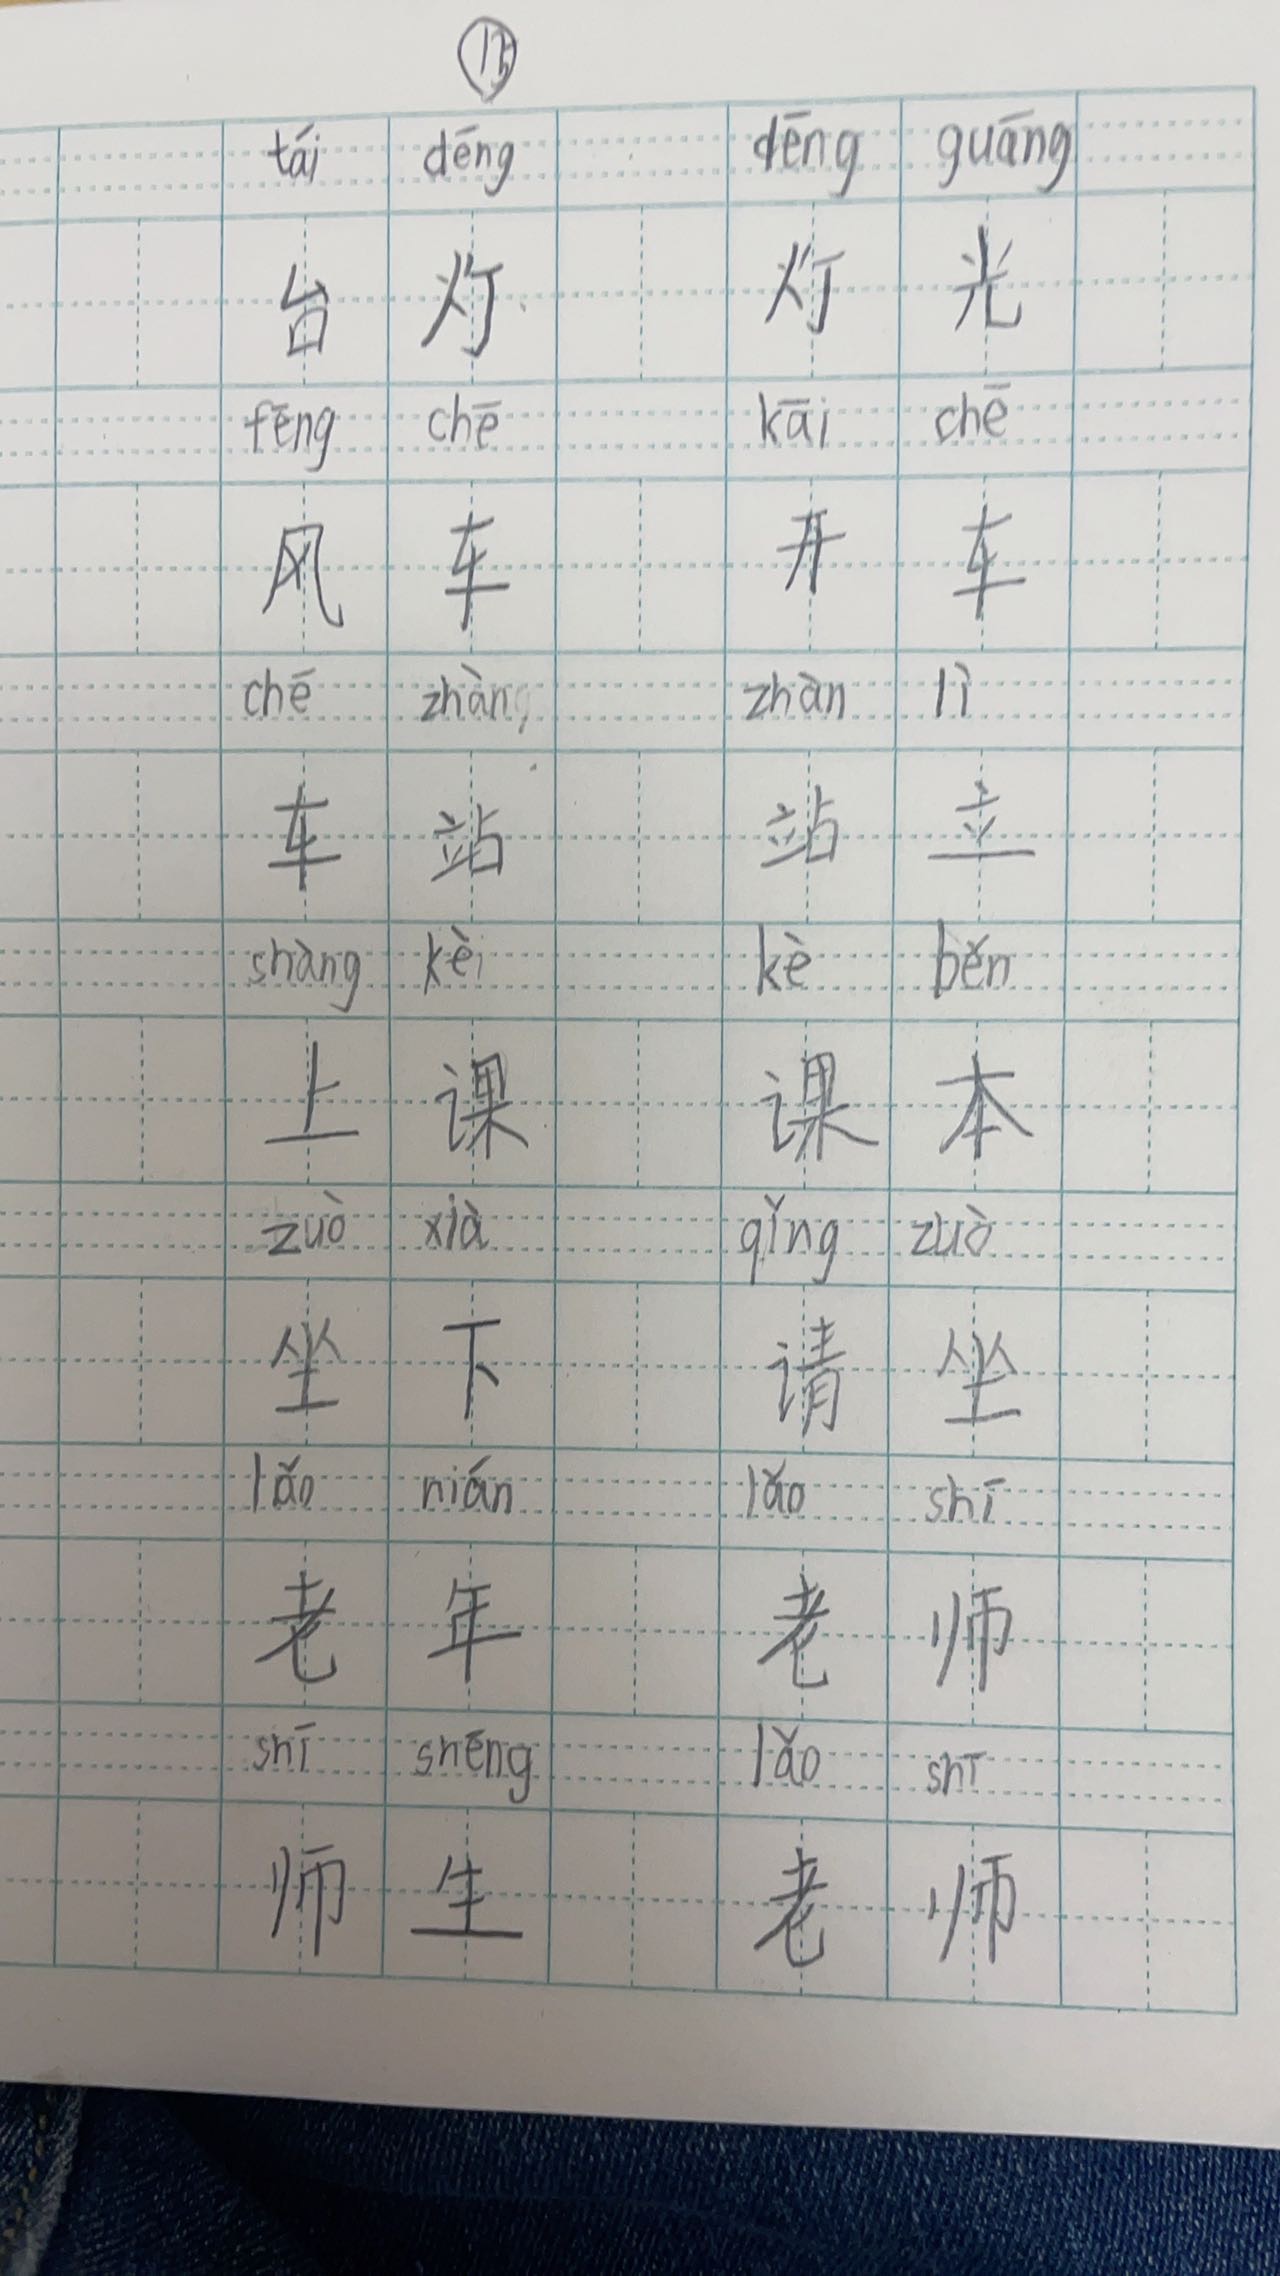 tái dēng dēng guāng
台 灯 灯 光
fēng chē kāi chē
风 车 开 车
chē zhàn zhàn lì
车 站 站 立
shàng kè kè běn
上 课 课 本
zuò xià qǐng zuò
坐 下 请 坐
lǎo nián lǎo shī
老 年 老 师
shī shēng lǎo shī
师 生 老 师